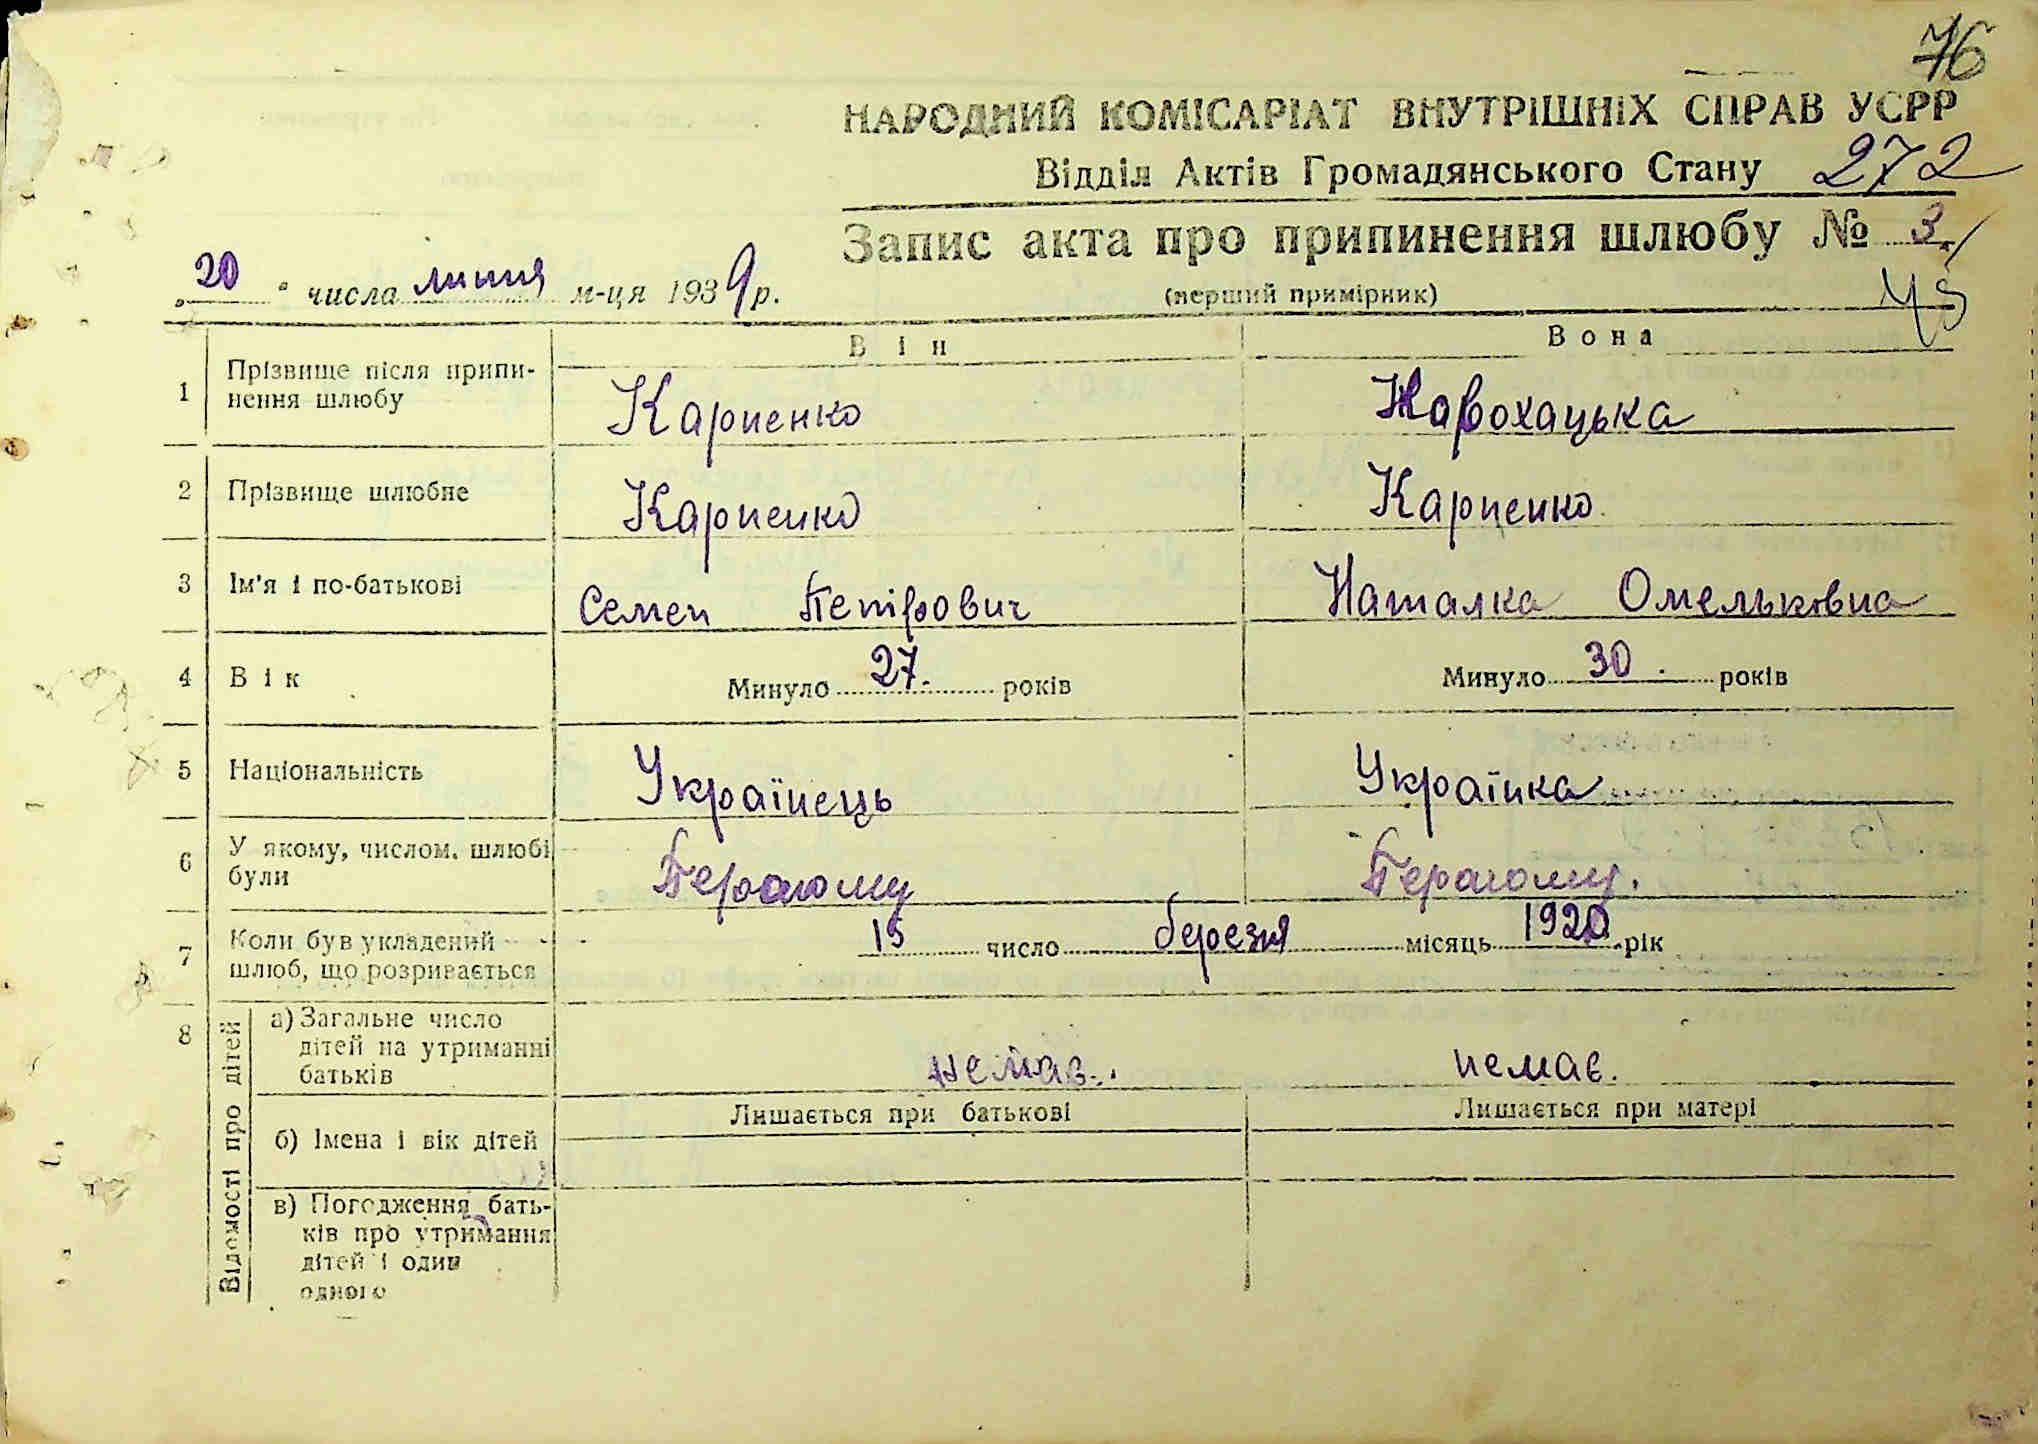 76
НАРОДНИЙ КОМІСАРІАТ ВНУТРІШНІХ СПРАВ УСРР
Відділ Актів Громадянського Стану 272
Запис акта про припинення шлюбу № 3
„20" числа липня м-ця 1939 р. (перший примірник)
Він Вона
1 Прізвище після припинення шлюбу Карпенко
2 Прізвище шлюбне Карпенко Карпенко
3 Ім'я і по-батькові Семен Петрович Наталка Омельковна
4 Вік Минуло 27. років Минуло 30. років
5 Національність Українець Українка
6 У якому, числом. шлюбі були Первому Первому.
7 Коли був укладений шлюб, що розривається 15 число березня місяць 1920 рік
8 Відомості про дітей
а) Загальне число дітей на утриманні батьків немає. немає.
б) Імена і вік дітей Лишається при батькові Лишається при матері
в) Погодження батьків про утримання дітей і один одного